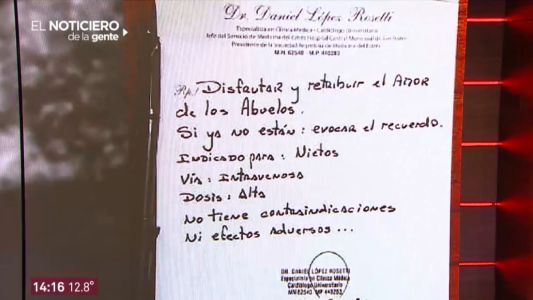 EL NOTICIERO
de la gente
Dr. Daniel López Rosetti
Especialista en Clínica Médica - Cardiólogo Universitario
Jefe del Servicio de Medicina del Estrés Hospital Central Municipal de San Isidro
Presidente de la Sociedad Argentina de Medicina del Estrés
M.N. 62540 M.P. 440283
Rp/ Disfrutar y retribuir el Amor
de los Abuelos.
Si ya no están: evocar el recuerdo.
Indicado para: Nietos
Vía: Intravenosa
Dosis: Alta
No tiene contraindicaciones
Ni efectos adversos...
DR. DANIEL LÓPEZ ROSETTI
Especialista en Clínica Médica
Cardiólogo Universitario
MN 62540 MP 440283
14:16 12.8°